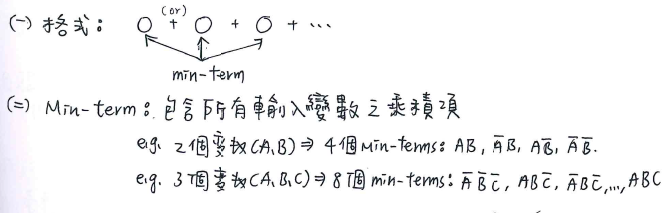 (一) 格式: ○ + ○ + ○ + ...
(or)
min-term
(二) Min-term: 包含所有輸入變數之乘積項
e.g. 2個變數(A,B) ⇒ 4個min-terms: AB, A̅B, AB̅, A̅B̅.
e.g. 3個變數(A,B,C) ⇒ 8個min-terms: A̅B̅C̅, ABC̅, A̅BC̅, ..., ABC